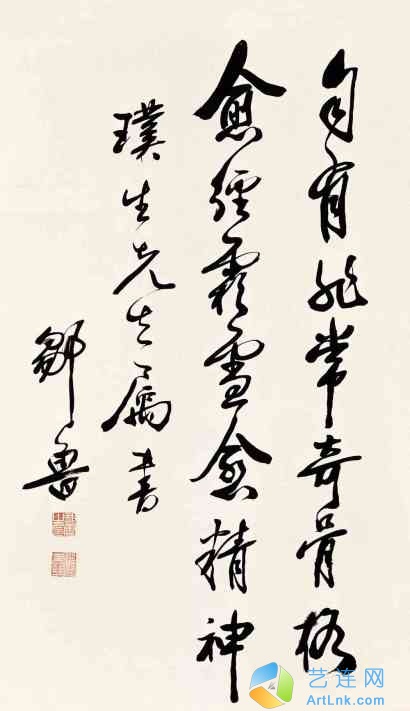 自有非常奇骨格
愈經霜雪愈精神
璞生先生屬書
鄒魯
艺连网
ArtLnk.com